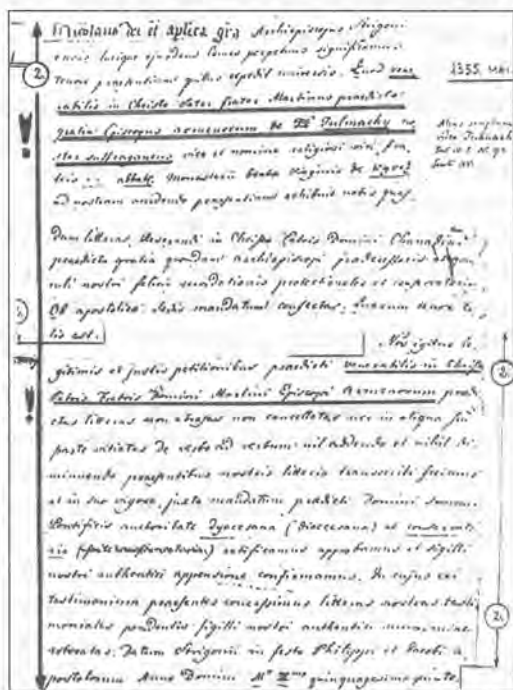 Nicolaus dei et aplica gra Archiepiscopus Strigoni
ensis locique ejusdem Comes perpetuus significamus
tenore praesentium quibus expedit universis. Quod vene
2.
1355. MAI.
rabilis in Christo Pater frater Martinus praedicta
gratia Episcopus Armenorum de Tulmachy no
ster suffraganeus vice et nomine religiosi viri fra
tris : . abbatis Monasterii beatae virginis de
ad nostram accedendo praesentiam exhibuit nobis quas
dam litteras, Reverendi in Christo Patris Domini Chanadini
praedicta gratia quondam archiepiscopi praedecessoris
nostri felicis recordationis
Ob apostolicae Sedis mandatum confectas. Quarum tenor ta
lis est.
Nos igitur le
gitimis et justis petitionibus praedicti venerabilis in Christo
Patris Fratris Domini Martini Episcopi Armenorum praedi
ctas litteras non abrasas non cancellatas nec in aliqua sui
parte vitiatas de verbo ad verbum nil addendo et nihil di
minuendo praesentibus nostris litteris transcribi fecimus
et in suo vigore, juxta mandatum praedicti Domini Summi
Pontificis authoritate Dyocesana (dioecesana) et
ratificamus approbamus et sigilli
nostri authentici appensione confirmamus. In cujus rei
testimonium praesentes concessimus litteras nostras testi
moniales pendentis sigilli nostri authentici munimine
roboratas. Datum Strigonii in festo Philippi et Jacobi a
postolorum Anno Domini quinquagesimo quinto.
2.
2.